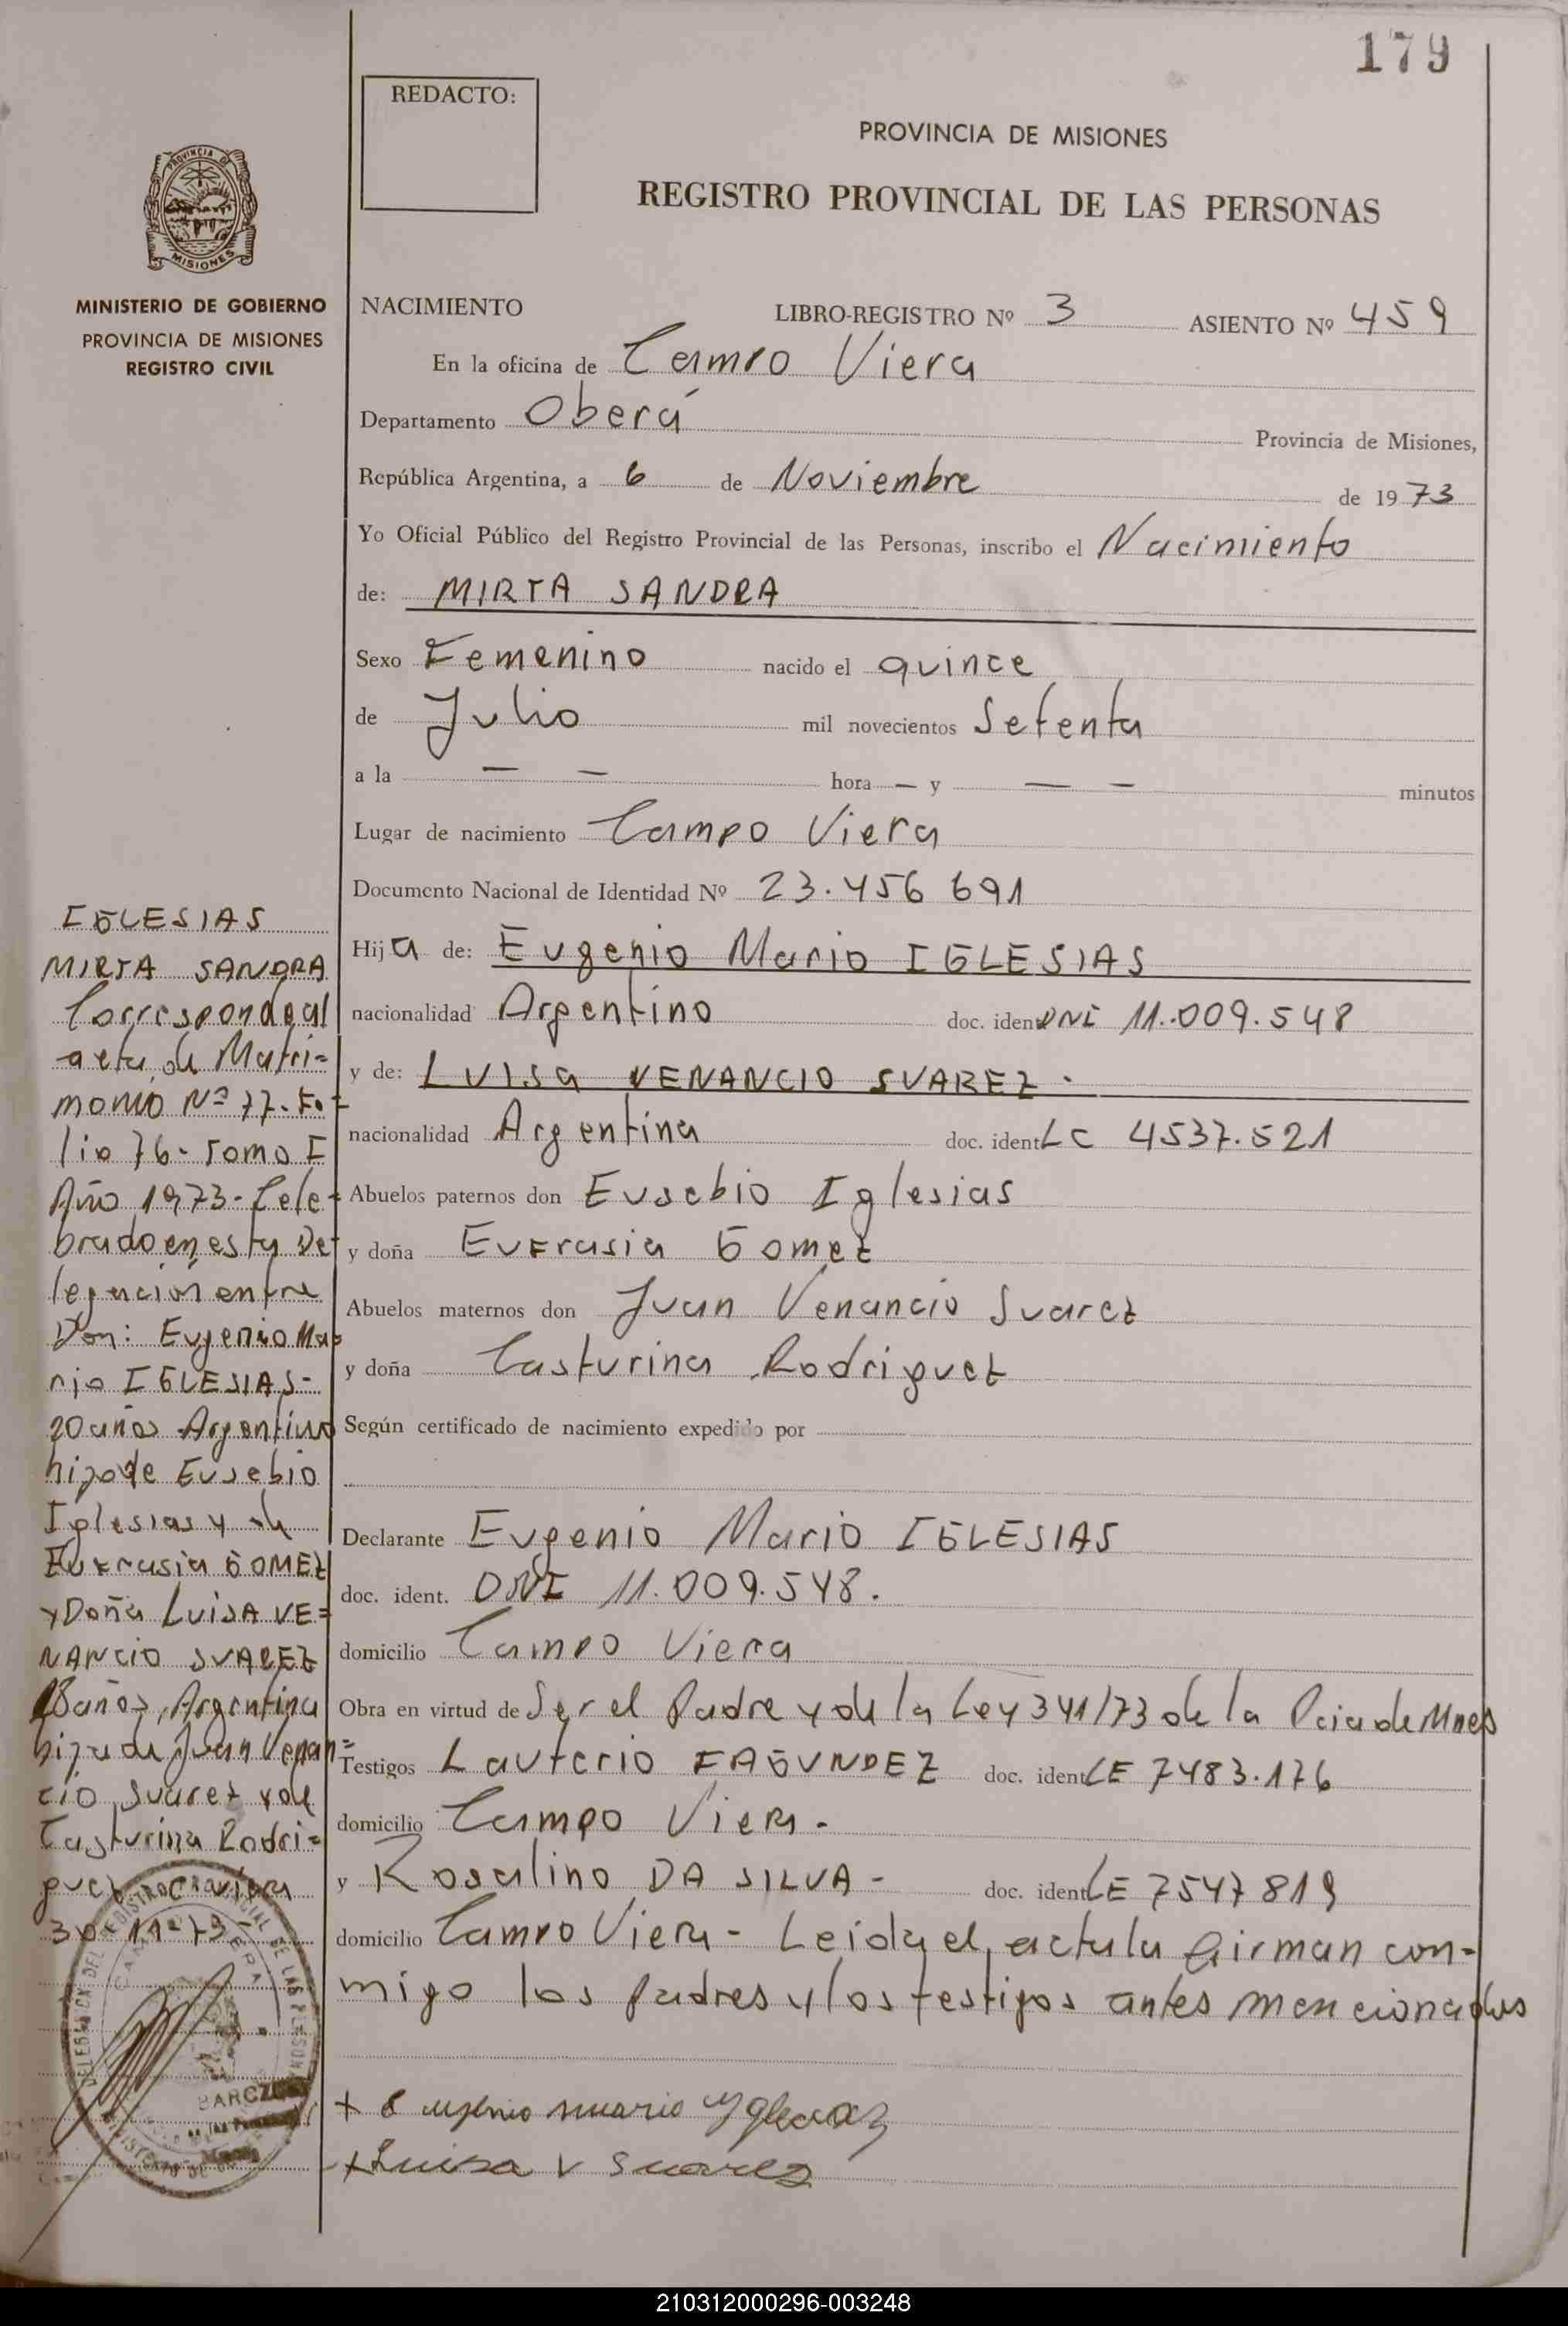 179
REDACTO:
PROVINCIA DE MISIONES
REGISTRO PROVINCIAL DE LAS PERSONAS
PROVINCIA DE
MISIONES
MINISTERIO DE GOBIERNO
PROVINCIA DE MISIONES
REGISTRO CIVIL
NACIMIENTO LIBRO-REGISTRO Nº 3 ASIENTO Nº 459
En la oficina de Campo Viera
Departamento Oberá Provincia de Misiones,
República Argentina, a 6 de Noviembre de 1973
Yo Oficial Público del Registro Provincial de las Personas, inscribo el Nacimiento
de: MIRTA SANDRA
Sexo Femenino nacido el quince
de Julio mil novecientos Setenta
a la — — hora — y — — minutos
Lugar de nacimiento Campo Viera
Documento Nacional de Identidad Nº 23.456 691
Hija de: Eugenio Mario IGLESIAS
nacionalidad Argentino doc. iden DNI 11.009.548
y de: LUISA VENANCIO SUAREZ.
nacionalidad Argentina doc. ident LC 4537.521
Abuelos paternos don Eusebio Iglesias
y doña Eufrasia Gomez
Abuelos maternos don Juan Venancio Suarez
y doña Casturina Rodriguez
Según certificado de nacimiento expedido por
Declarante Eugenio Mario IGLESIAS
doc. ident. DNI 11.009.548.
domicilio Campo Viera
Obra en virtud de Ser el Padre y de la Ley 341/73 de la Pcia de Mnes
Testigos Lauterio FAGUNDEZ doc. ident LE 7483.176
domicilio Campo Viera.
y Rosalino DA SILVA - doc. ident LE 7547819
domicilio Campo Viera - Leida el acta la Firman con-
migo los padres y los testigos antes mencionados
+ Eugenio mario Yglesias
+ Luisa V Suarez
IGLESIAS
MIRTA SANDRA
Corresponde al
acta de Matri=
monio Nº 77. Fo=
lio 76- Tomo I
Año 1973- Cele=
brado en esta De=
legación entre
Don: Eugenio Ma=
rio IGLESIAS-
20 años Argentino
hijo de Eusebio
Iglesias y de
Eufrasia GOMEZ
y Doña LUISA VE=
NANCIO SUAREZ
18 años, Argentina
hija de Juan Venan=
cio Suarez y de
Casturina Rodri=
guez C. Viera
30-11-73-
DELEGACION DEL REGISTRO PROVINCIAL DE LAS PERSONAS
CAMPO VIERA
210312000296-003248